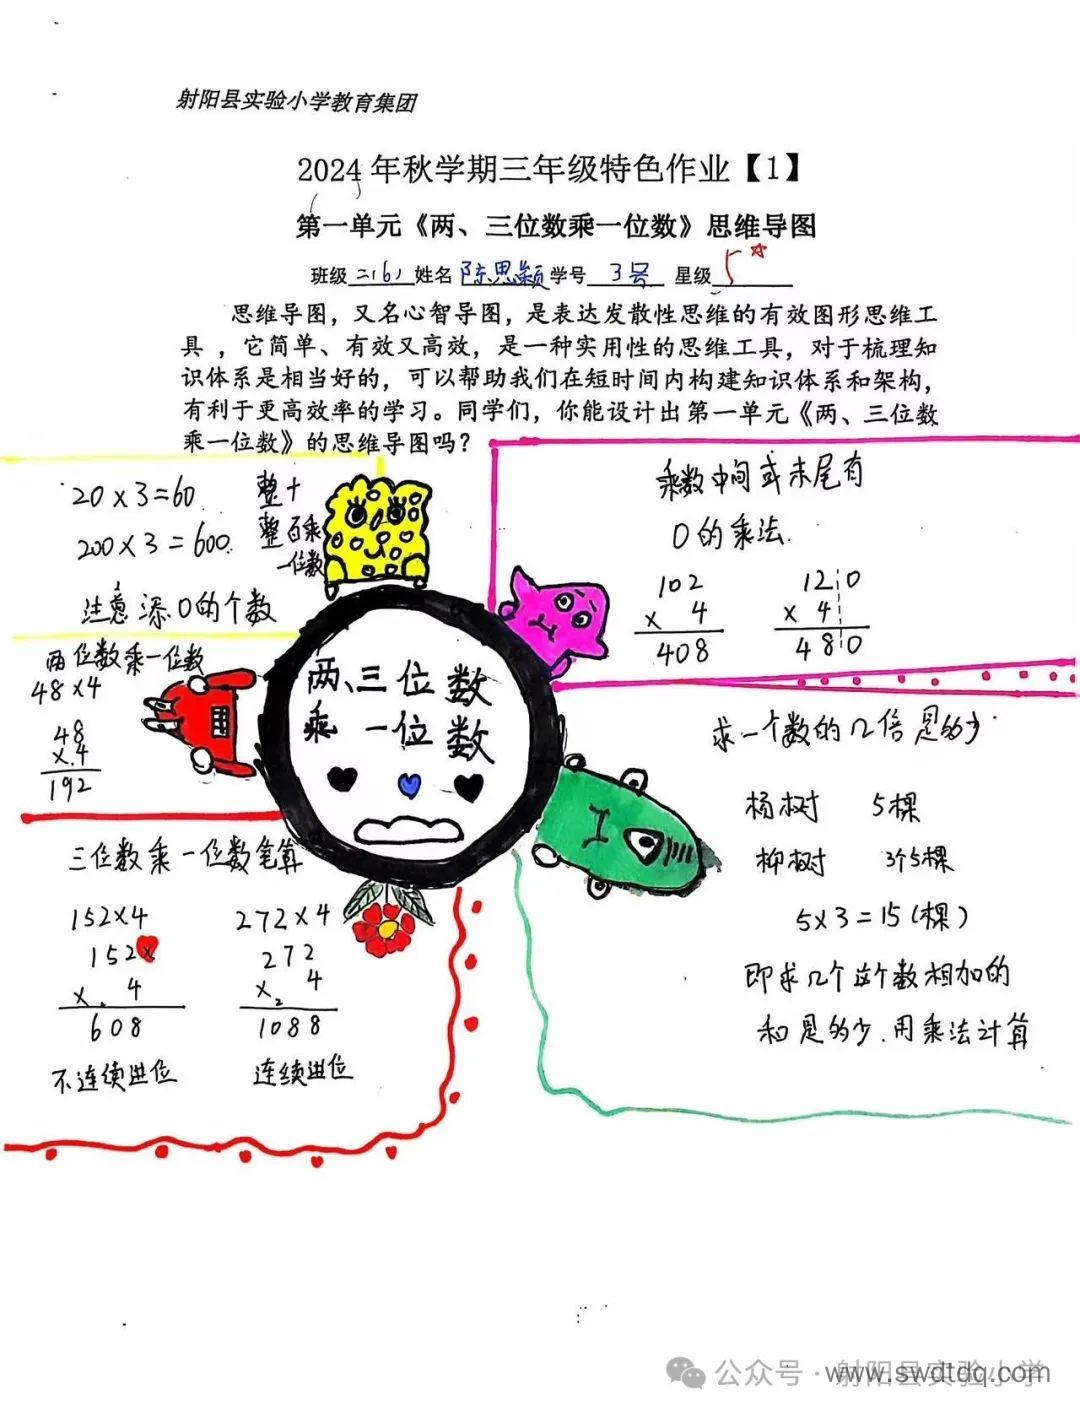 射阳县实验小学教育集团
2024年秋学期三年级特色作业【1】
第一单元《两、三位数乘一位数》思维导图
班级三(6)姓名陈思颖学号3号 星级5☆
思维导图，又名心智导图，是表达发散性思维的有效图形思维工
具 ，它简单、有效又高效，是一种实用性的思维工具，对于梳理知
识体系是相当好的，可以帮助我们在短时间内构建知识体系和架构，
有利于更高效率的学习。同学们，你能设计出第一单元《两、三位数
乘一位数》的思维导图吗？
20×3=60
200×3=600.
整十
整百乘
一位数
注意添0的个数
两位数乘一位数
48×4
48
×.4
192
三位数乘一位数笔算
152×4
152
×. 4
608
不连续进位
272×4
272
×2 4
1088
连续进位
两、三位数
乘一位数
乘数中间或末尾有
0的乘法.
102
× 4
408
120
× 4
480
求一个数的几倍是多少
杨树 5棵
柳树 3个5棵
5×3=15(棵)
即求几个这个数相加的
和是多少.用乘法计算
公众号·射阳县实验小学
www.swdtdq.com